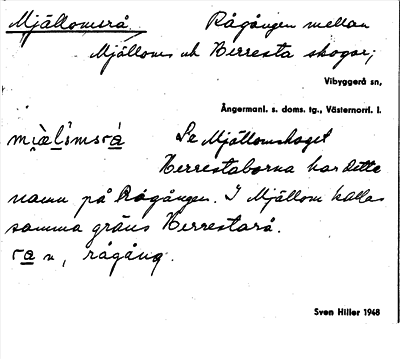 Mjällomsrå Rågången mellan
Mjälloms och Herresta skogar;
Vibyggerå sn,
Ångermanl. s. doms. tg., Västernorrl. l.
Se Mjällomskoget
Herrestaborna har detta
namn på Rågången. I Mjällom kallas
samma gräns Herrestarå.
ra n, rågång.
Sven Hiller 1948